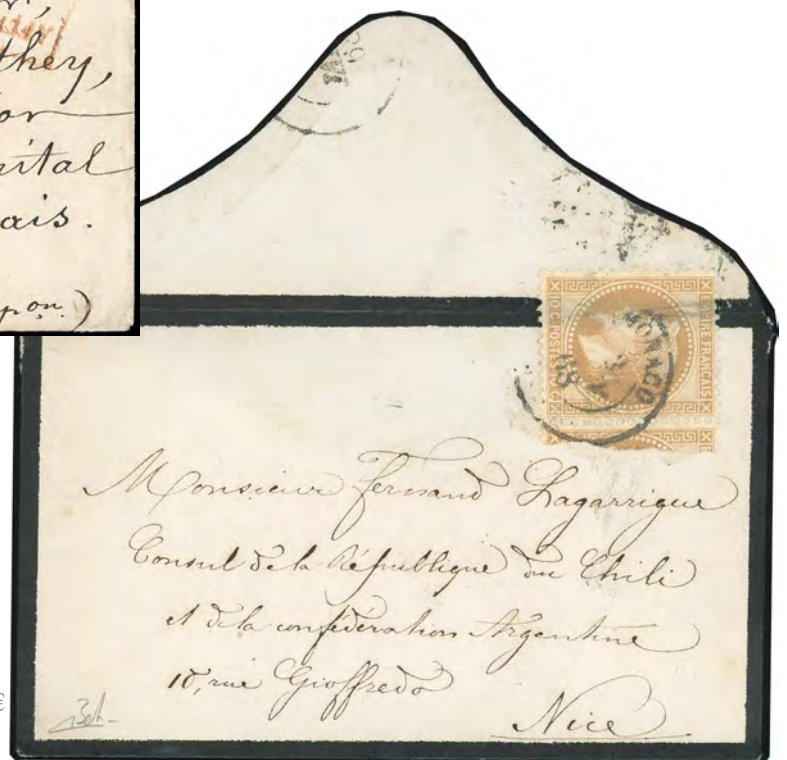 r,
they,
or
pital
ais.
pon.)
68
EMPIRE FRANÇAIS
10 C. POSTES 10 C.
MONACO
68
Monsieur Fernand Lagarrigue
Consul de la République du Chili
et de la confédération Argentine
10, rue Gioffredo
Nice
€